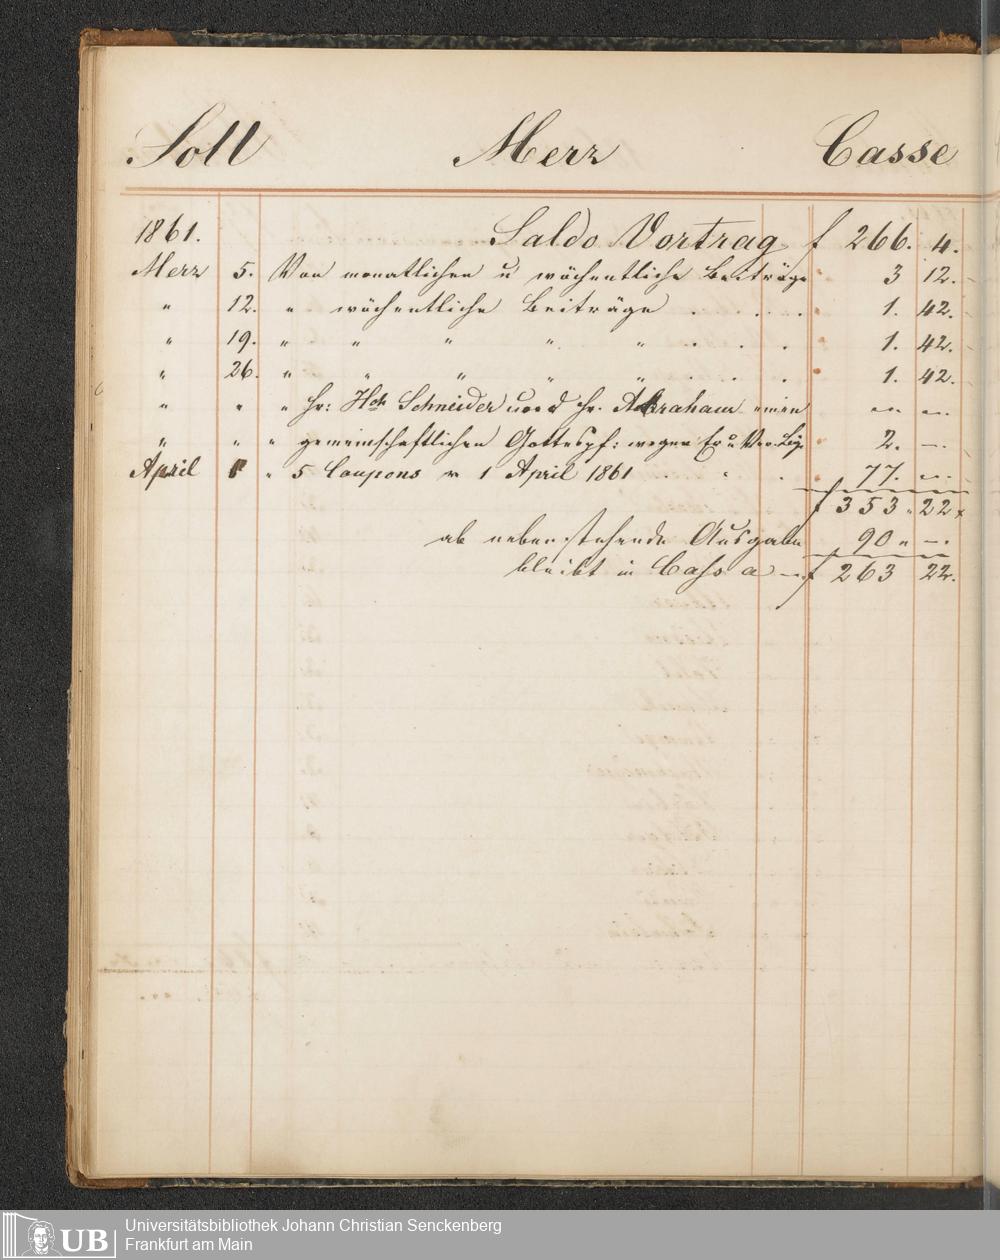 Soll Merz Casse
1861. Saldo Vortrag f 266. 4.
Merz 5. Von monatlichen u wöchentliche Beiträge 3 12.
" 12. " wöchentliche Beiträge . . . . 1. 42.
" 19. " " " " " . . . 1. 42.
" 26. " " " " " . . . 1. 42.
" " " Hr: Schneider und Hr. Abraham einen " "
" " " gemeinschaftlichen Gottespf: wegen 2. —
April " 5 Coupons 1 April 1861 . . . 77. —
f 353 " 22 x
ab nebenstehende Ausgabe 90 " —
bleibt in Cassa — f 263 22.
UB Universitätsbibliothek Johann Christian Senckenberg
Frankfurt am Main